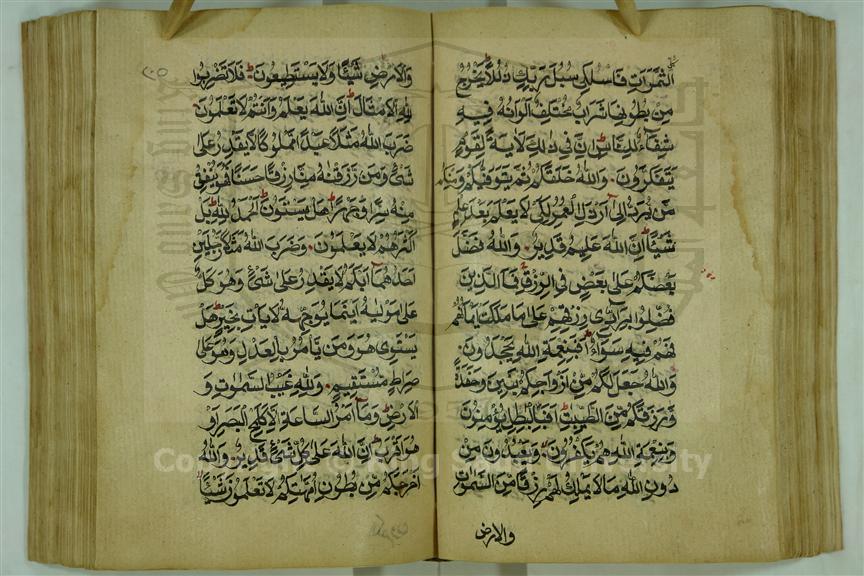 الثَّمَرَاتِ فَاسْلُكِي سُبُلَ رَبِّكِ ذُلُلًا يَخْرُجُ
مِنْ بُطُونِهَا شَرَابٌ مُخْتَلِفٌ أَلْوَانُهُ فِيهِ
شِفَاءٌ لِلنَّاسِ إِنَّ فِي ذَلِكَ لَآيَةً لِقَوْمٍ
يَتَفَكَّرُونَ وَاللهُ خَلَقَكُمْ ثُمَّ يَتَوَفَّيكُمْ وَمِنْكُمْ
مَنْ يُرَدُّ إِلَى أَرْذَلِ الْعُمُرِ لِكَيْ لَا يَعْلَمَ بَعْدَ عِلْمٍ
شَيْئًا إِنَّ اللهَ عَلِيمٌ قَدِيرٌ وَاللهُ فَضَّلَ
بَعْضَكُمْ عَلَى بَعْضٍ فِي الرِّزْقِ فَمَا الَّذِينَ
فُضِّلُوا بِرَادِّي رِزْقِهِمْ عَلَى مَا مَلَكَتْ أَيْمَانُهُمْ
فَهُمْ فِيهِ سَوَاءٌ أَفَبِنِعْمَةِ اللهِ يَجْحَدُونَ
وَاللهُ جَعَلَ لَكُمْ مِنْ أَزْوَاجِكُمْ بَنِينَ وَحَفَدَةً
وَرَزَقَكُمْ مِنَ الطَّيِّبَتِ أَفَبِالْبَطِلِ يُؤْمِنُونَ
وَبِنِعْمَةِ اللهِ هُمْ يَكْفُرُونَ وَيَعْبُدُونَ مِنْ
دُونِ اللهِ مَا لَا يَمْلِكُ لَهُمْ رِزْقًا مِنَ السَّمَوَاتِ
والارض
وَالْأَرْضِ شَيْئًا وَلَا يَسْتَطِيعُونَ فَلَا تَضْرِبُوا
لِلَّهِ الْأَمْثَالَ إِنَّ اللهَ يَعْلَمُ وَأَنْتُمْ لَا تَعْلَمُونَ
ضَرَبَ اللهُ مَثَلًا عَبْدًا مَمْلُوكًا لَا يَقْدِرُ عَلَى
شَيْءٍ وَمَنْ رَزَقْنَهُ مِنَّا رِزْقًا حَسَنًا فَهُوَ يُنْفِقُ
مِنْهُ سِرًّا وَجَهْرًا هَلْ يَسْتَوُنَ الْحَمْدُ لِلَّهِ بَلْ
أَكْثَرُهُمْ لَا يَعْلَمُونَ وَضَرَبَ اللهُ مَثَلًا رَجُلَيْنِ
أَحَدُهُمَا أَبْكَمُ لَا يَقْدِرُ عَلَى شَيْءٍ وَهُوَ كَلٌّ
عَلَى مَوْلَيهُ أَيْنَمَا يُوَجِّهْهُ لَا يَأْتِ بِخَيْرٍ هَلْ
يَسْتَوِي هُوَ وَمَنْ يَأْمُرُ بِالْعَدْلِ وَهُوَ عَلَى
صِرَاطٍ مُسْتَقِيمٍ وَلِلَّهِ غَيْبُ السَّمَوَتِ وَ
الْأَرْضِ وَمَا أَمْرُ السَّاعَةِ إِلَّا كَلَمْحِ الْبَصَرِ أَوْ
هُوَ أَقْرَبُ إِنَّ اللهَ عَلَى كُلِّ شَيْءٍ قَدِيرٌ وَاللهُ
أَخْرَجَكُمْ مِنْ بُطُونِ أُمَّهَتِكُمْ لَا تَعْلَمُونَ شَيْئًا